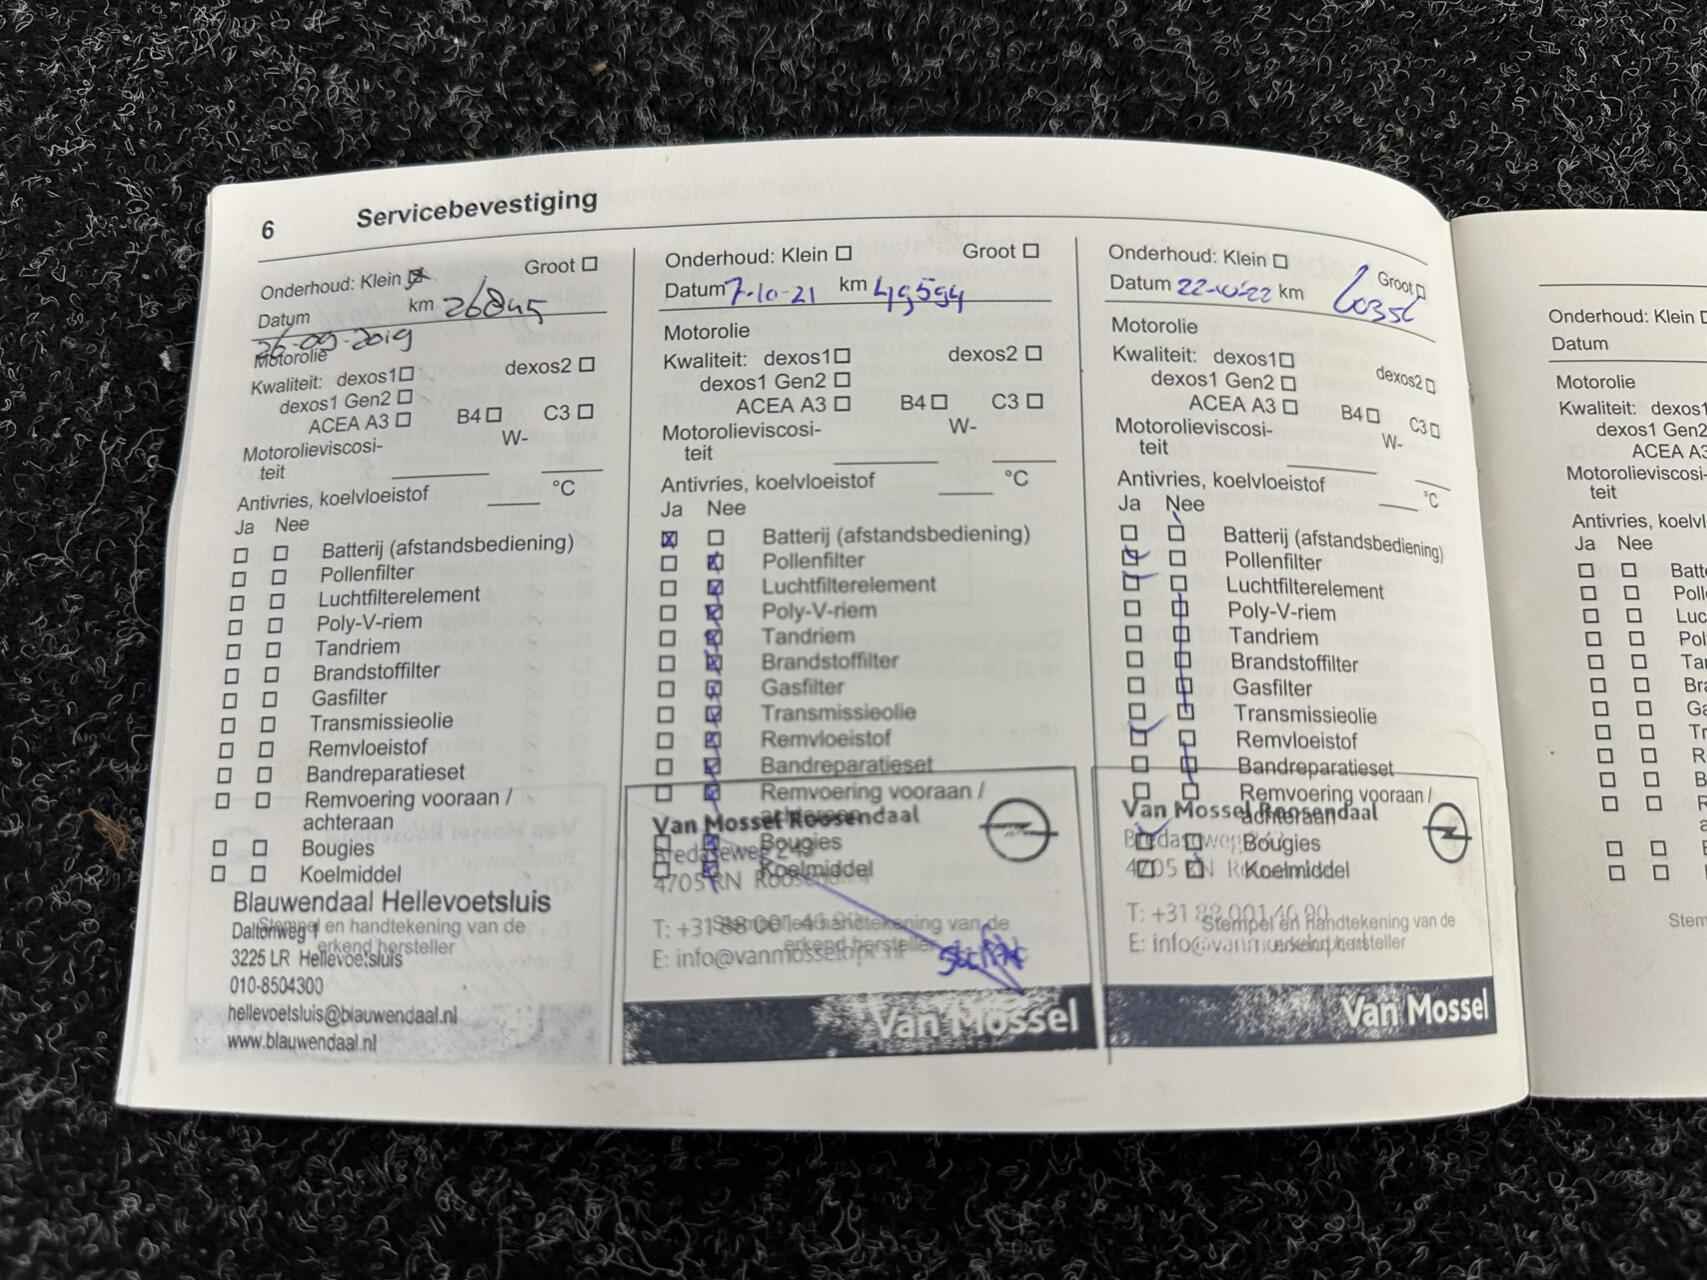 6 Servicebevestiging
Onderhoud: Klein Groot
Datum km 26845
26-09-2019
Motorolie
Kwaliteit: dexos1 dexos2
dexos1 Gen2
ACEA A3 B4 C3
Motorolieviscosi- W-
teit
Antivries, koelvloeistof °C
Ja Nee
Batterij (afstandsbediening)
Pollenfilter
Luchtfilterelement
Poly-V-riem
Tandriem
Brandstoffilter
Gasfilter
Transmissieolie
Remvloeistof
Bandreparatieset
Remvoering vooraan /
achteraan
Bougies
Koelmiddel
Blauwendaal Hellevoetsluis
Stempel en handtekening van de
Daltonweg 1
erkend hersteller
3225 LR Hellevoetsluis
010-8504300
hellevoetsluis@blauwendaal.nl
www.blauwendaal.nl
Onderhoud: Klein Groot
Datum 7-10-21 km 49594
Motorolie
Kwaliteit: dexos1 dexos2
dexos1 Gen2
ACEA A3 B4 C3
Motorolieviscosi- W-
teit
Antivries, koelvloeistof °C
Ja Nee
Batterij (afstandsbediening)
Pollenfilter
Luchtfilterelement
Poly-V-riem
Tandriem
Brandstoffilter
Gasfilter
Transmissieolie
Remvloeistof
Bandreparatieset
Remvoering vooraan /
achteraan
Van Mossel Roosendaal
Bougies
Koelmiddel
4705 RN Roosendaal
handtekening van de
erkend hersteller
Van Mossel
Onderhoud: Klein Groot
Datum 22-10-22 km
Motorolie
Kwaliteit: dexos1 dexos2
dexos1 Gen2
ACEA A3 B4 C3
Motorolieviscosi- W-
teit
Antivries, koelvloeistof °C
Ja Nee
Batterij (afstandsbediening)
Pollenfilter
Luchtfilterelement
Poly-V-riem
Tandriem
Brandstoffilter
Gasfilter
Transmissieolie
Remvloeistof
Bandreparatieset
Remvoering vooraan /
achteraan
Van Mossel Roosendaal
Bougies
Koelmiddel
Stempel en handtekening van de
erkend hersteller
Van Mossel
Onderhoud: Klein
Datum
Motorolie
Kwaliteit: dexos1
dexos1 Gen2
ACEA A3
Motorolieviscosi-
teit
Antivries, koelvl
Ja Nee
Batt
Poll
Luc
Pol
Ta
Bra
Ga
Tr
R
B
Stem